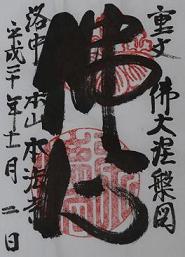 重文 佛大涅槃図
佛心
洛中 本山 本法寺
平成二十年十一月二日